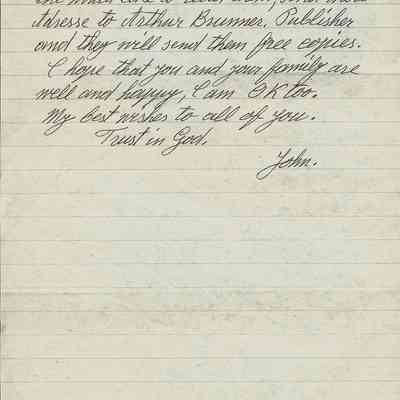 Adresse to Arthur Brunner, Publisher
and they will send them free copies.
I hope that you and your family are
well and happy, I am OK too.
My best wishes to all of you.
Trust in God.
John.